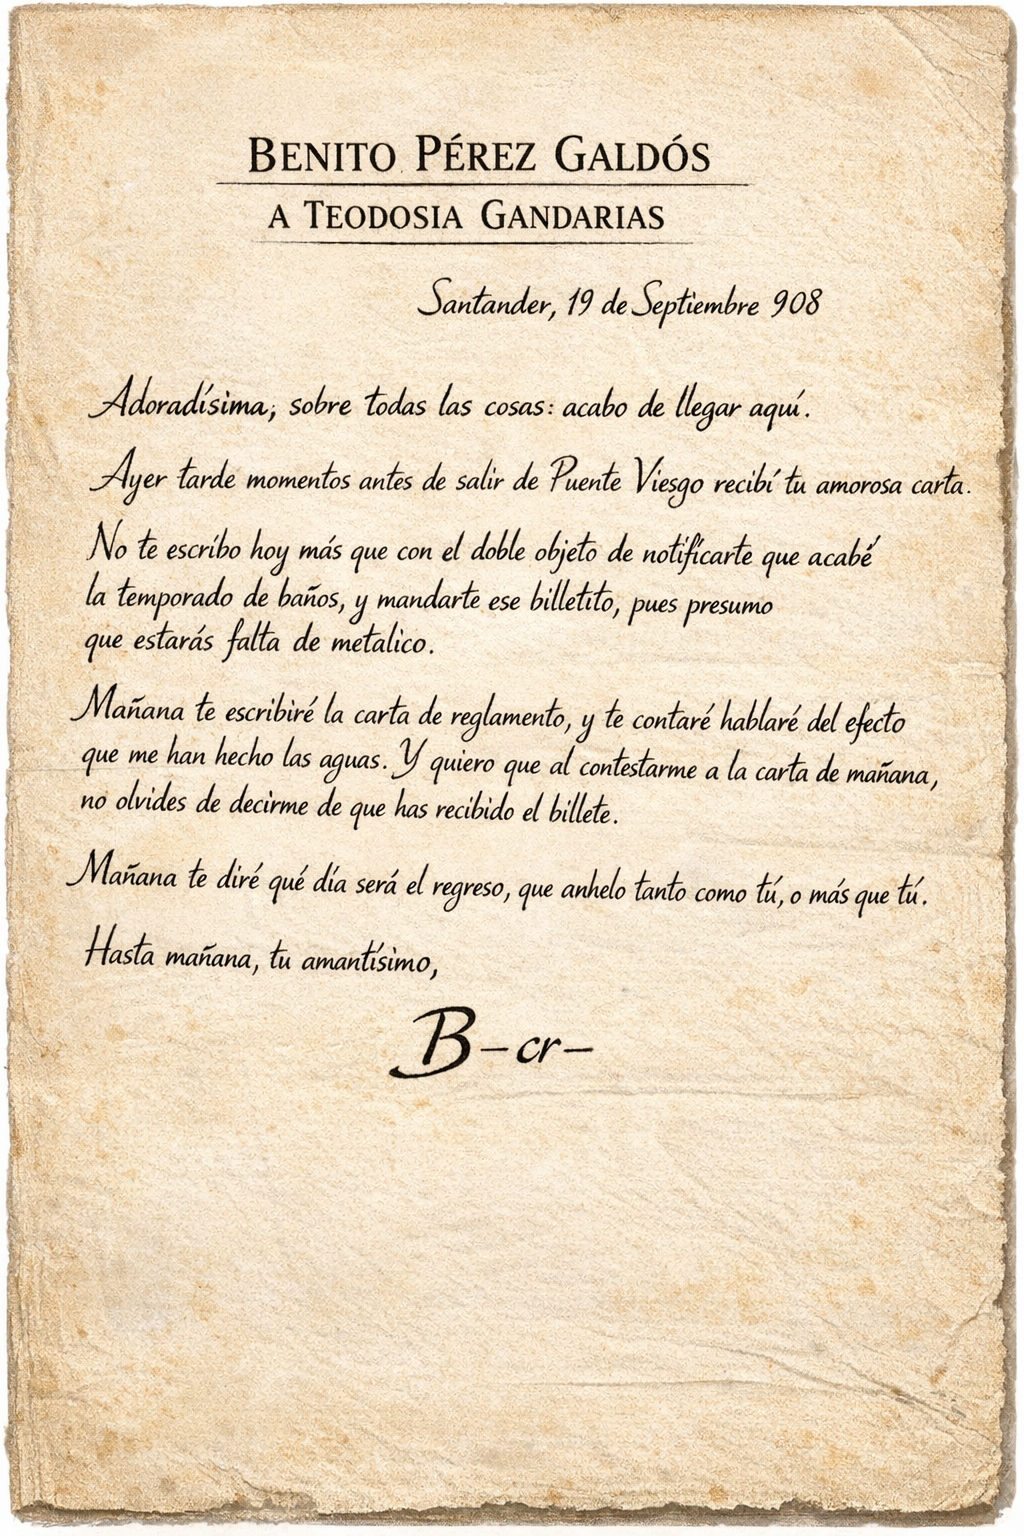 BENITO PÉREZ GALDÓS
A TEODOSIA GANDARIAS
Santander, 19 de Septiembre 908
Adoradísima, sobre todas las cosas: acabo de llegar aquí.
Ayer tarde momentos antes de salir de Puente Viesgo recibí tu amorosa carta.
No te escribo hoy más que con el doble objeto de notificarte que acabé
la temporado de baños, y mandarte ese billetito, pues presumo
que estarás falta de metalico.
Mañana te escribiré la carta de reglamento, y te contaré hablaré del efecto
que me han hecho las aguas. Y quiero que al contestarme a la carta de mañana,
no olvides de decirme de que has recibido el billete.
Mañana te diré qué día será el regreso, que anhelo tanto como tú, o más que tú.
Hasta mañana, tu amantísimo,
B-cr-